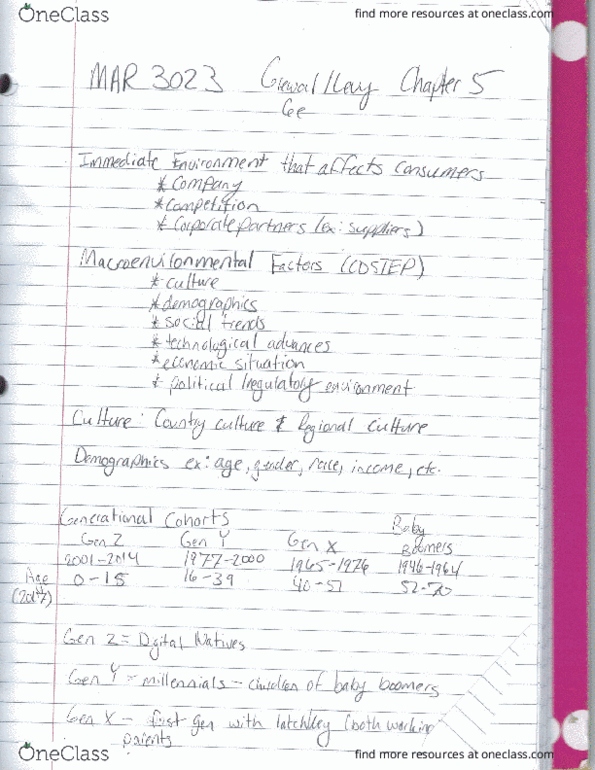 OneClass
find more resources at oneclass.com
MAR 3023 Grewal/Levy Chapter 5
6e
Immediate Environment that affects consumers
* Company
* Competition
* Corporate partners (ex: suppliers)
Macroenvironmental Factors (CDSTEP)
* culture
* demographics
* social trends
* technological advances
* economic situation
* political/regulatory environment
Culture: Country culture & Regional culture
Demographics ex: age, gender, race, income, etc.
Generational Cohorts
Gen Z Gen Y Gen X Baby Boomers
2001-2014 1977-2000 1965-1976 1946-1964
Age 0-15 16-39 40-51 52-70
Gen Z = Digital Natives
Gen Y = millennials - children of baby boomers
Gen X - first gen with latchkey (both working
parents
OneClass
find more resources at oneclass.com